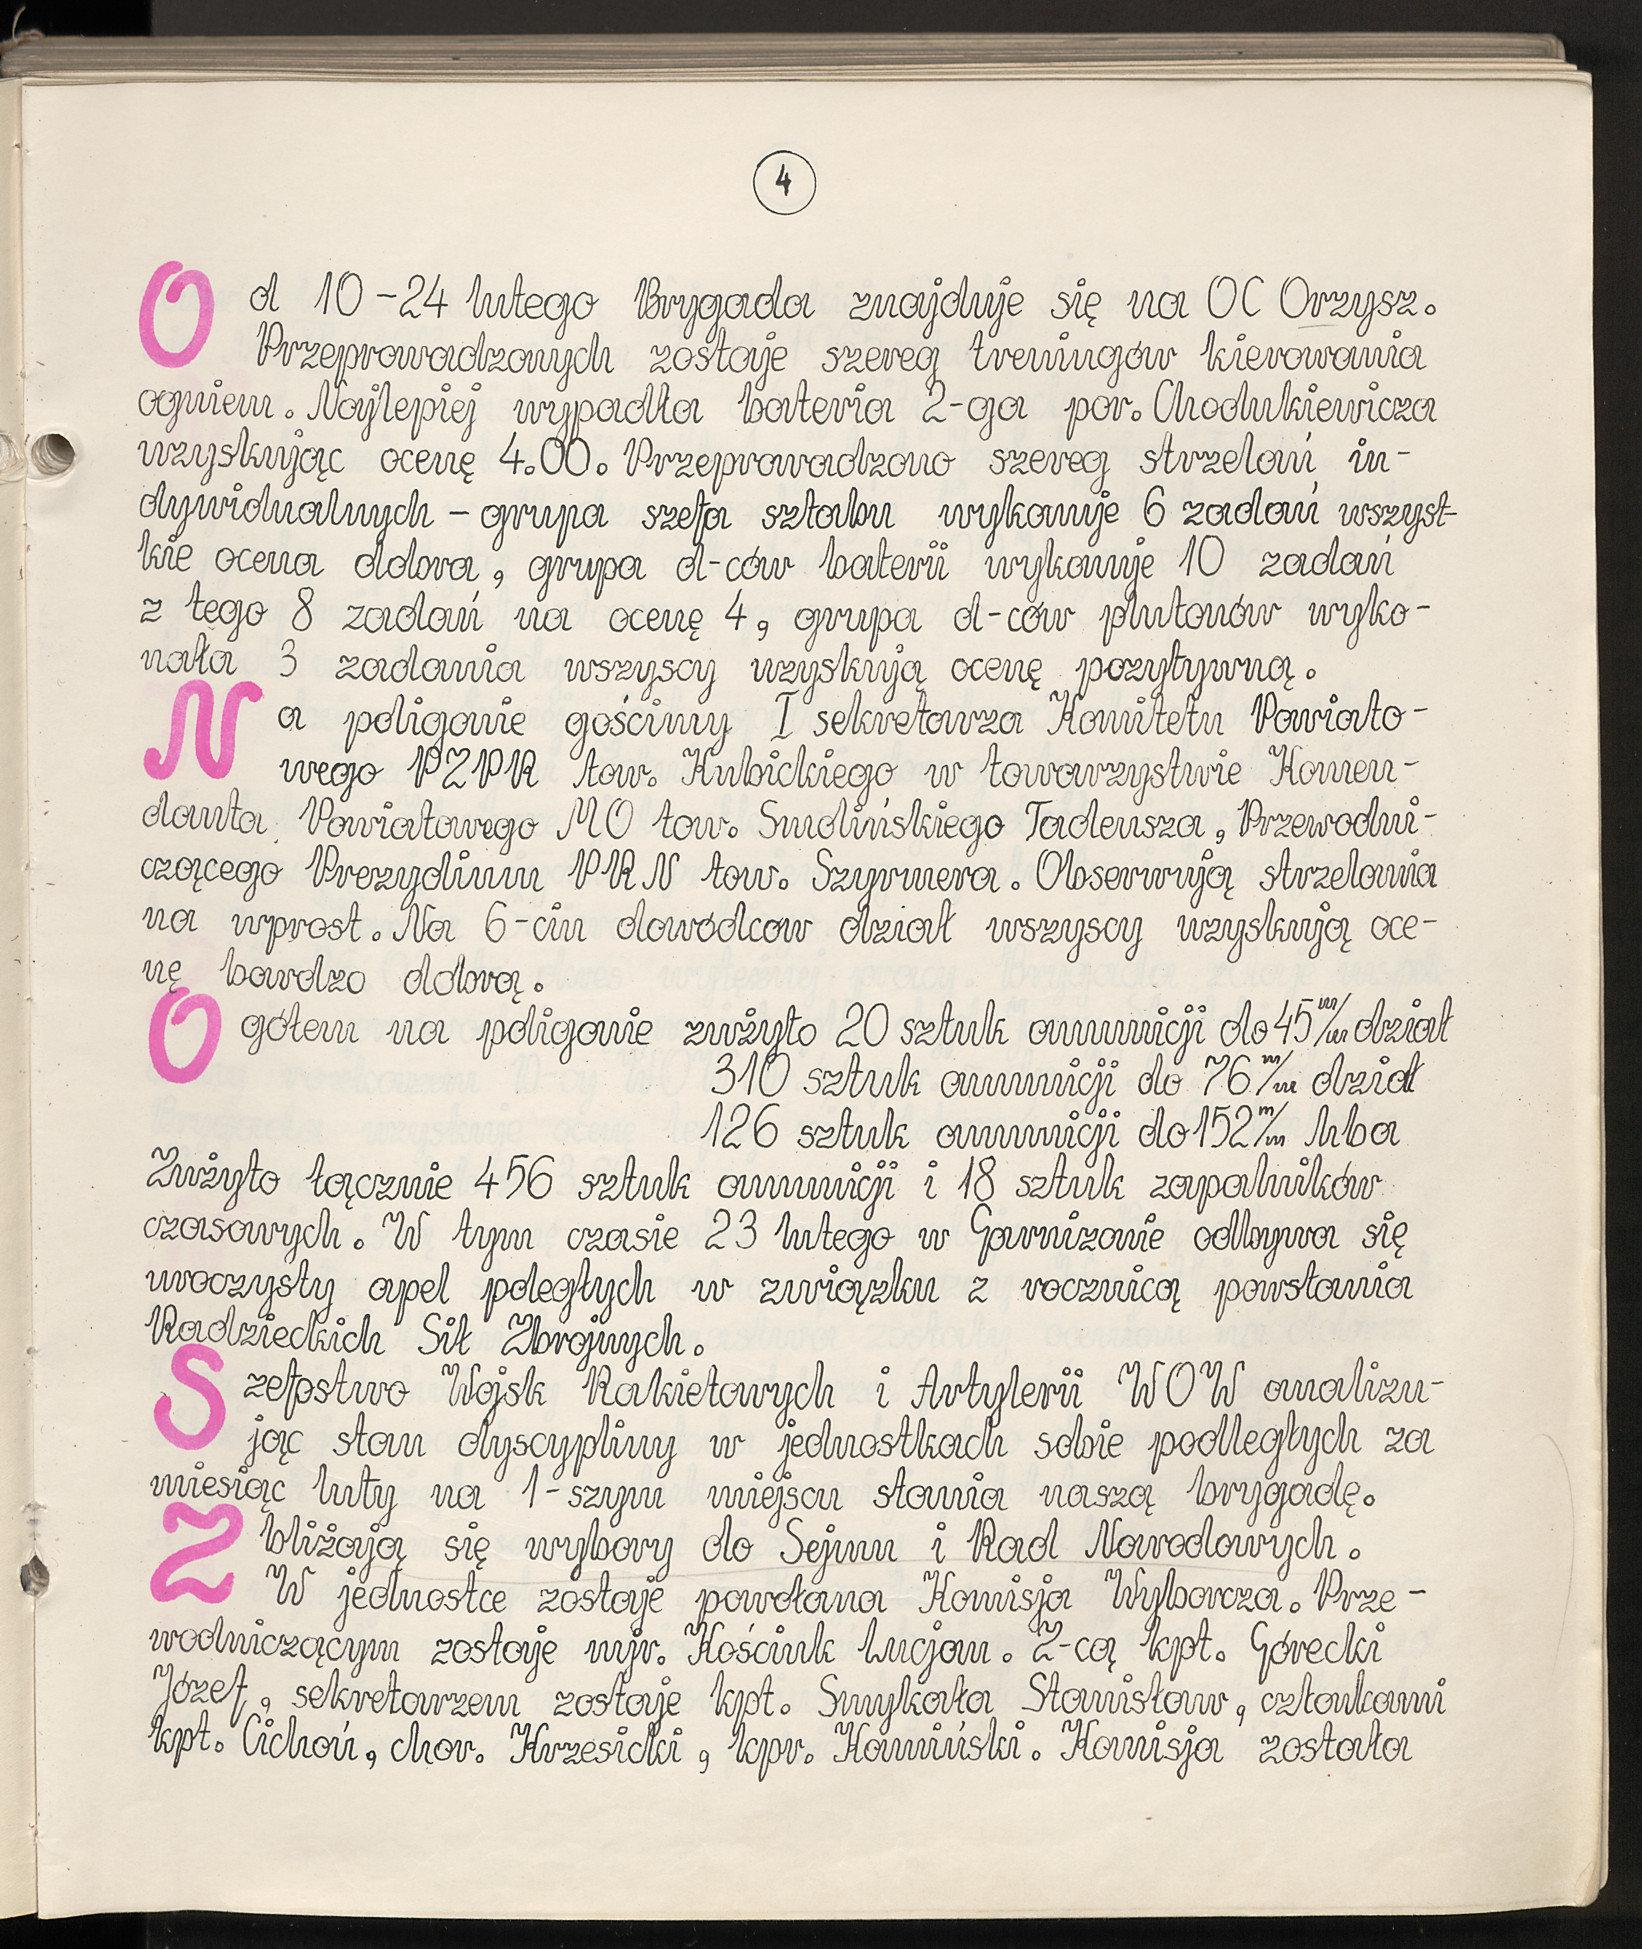 4
Od 10-24 lutego Brygada znajduje się na OC Orzysz.
Przeprowadzonych zostaje szereg treningów kierowania
ogniem. Najlepiej wypadła bateria 2-ga por. Chodukiewicza
uzyskując ocenę 4.00. Przeprowadzono szereg strzelań in-
dywidualnych - grupa szefa sztabu wykonuje 6 zadań wszyst-
kie ocena dobra, grupa d-ców baterii wykonuje 10 zadań
z tego 8 zadań na ocenę 4, grupa d-ców plutonów wyko-
nała 3 zadania wszyscy uzyskują ocenę pozytywną.
Na poligonie gościmy I sekretarza Komitetu Powiato-
wego PZPR tow. Kubickiego w towarzystwie Komen-
danta Powiatowego MO tow. Smolińskiego Tadeusza, Przewodni-
czącego Prezydium PRN tow. Szyrmera. Obserwują strzelania
na wprost. Na 6-ciu dowódcow dział wszyscy uzyskują oce-
nę bardzo dobrą.
Ogółem na poligonie zużyto 20 sztuk amunicji do 45 m/m dział
310 sztuk amunicji do 76 m/m dział
126 sztuk amunicji do 152 m/m hba
Zużyto łącznie 456 sztuk amunicji i 18 sztuk zapalników
czasowych. W tym czasie 23 lutego w Garnizonie odbywa się
uroczysty apel poległych w związku z rocznicą powstania
Radzieckich Sił Zbrojnych.
Szefostwo Wojsk Rakietowych i Artylerii WOW analizu-
jąc stan dyscypliny w jednostkach sobie podległych za
miesiąc luty na 1-szym miejscu stawia naszą brygadę.
Zbliżają się wybory do Sejmu i Rad Narodowych.
W jednostce zostaje powołana Komisja Wyborcza. Prze-
wodniczącym zostaje mjr. Kościuk Lucjan. Z-cą kpt. Górecki
Józef, sekretarzem zostaje kpt. Smykała Stanisław, członkami
kpt. Cichoń, chor. Krzesicki, kpr. Kamiński. Komisja została